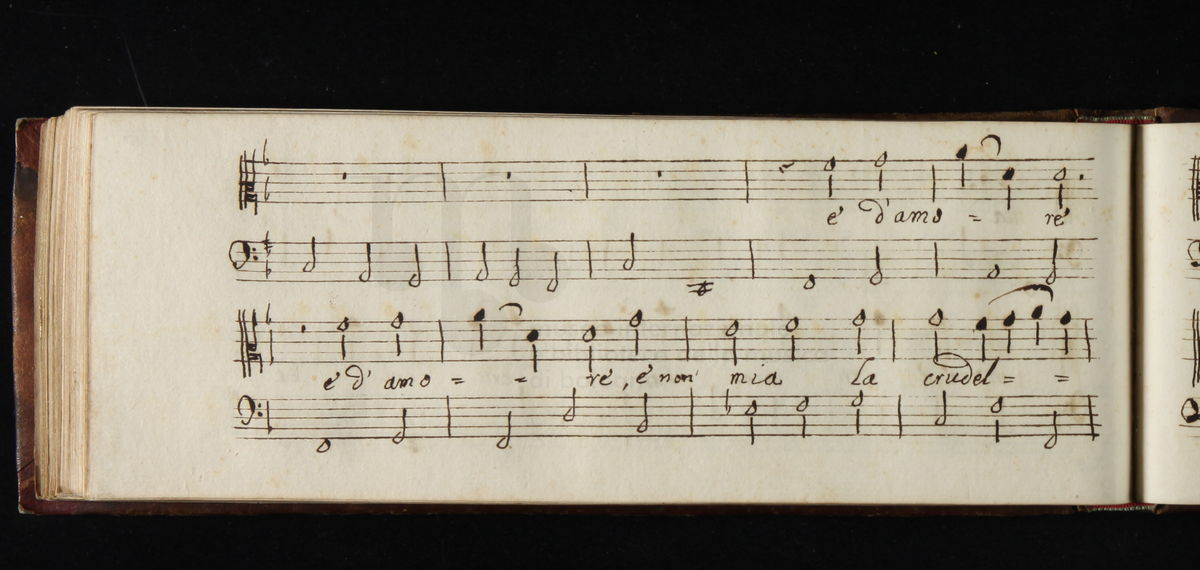 e' d'amo = re'
e' d' amo = = re', e' non' mia la crudel = =